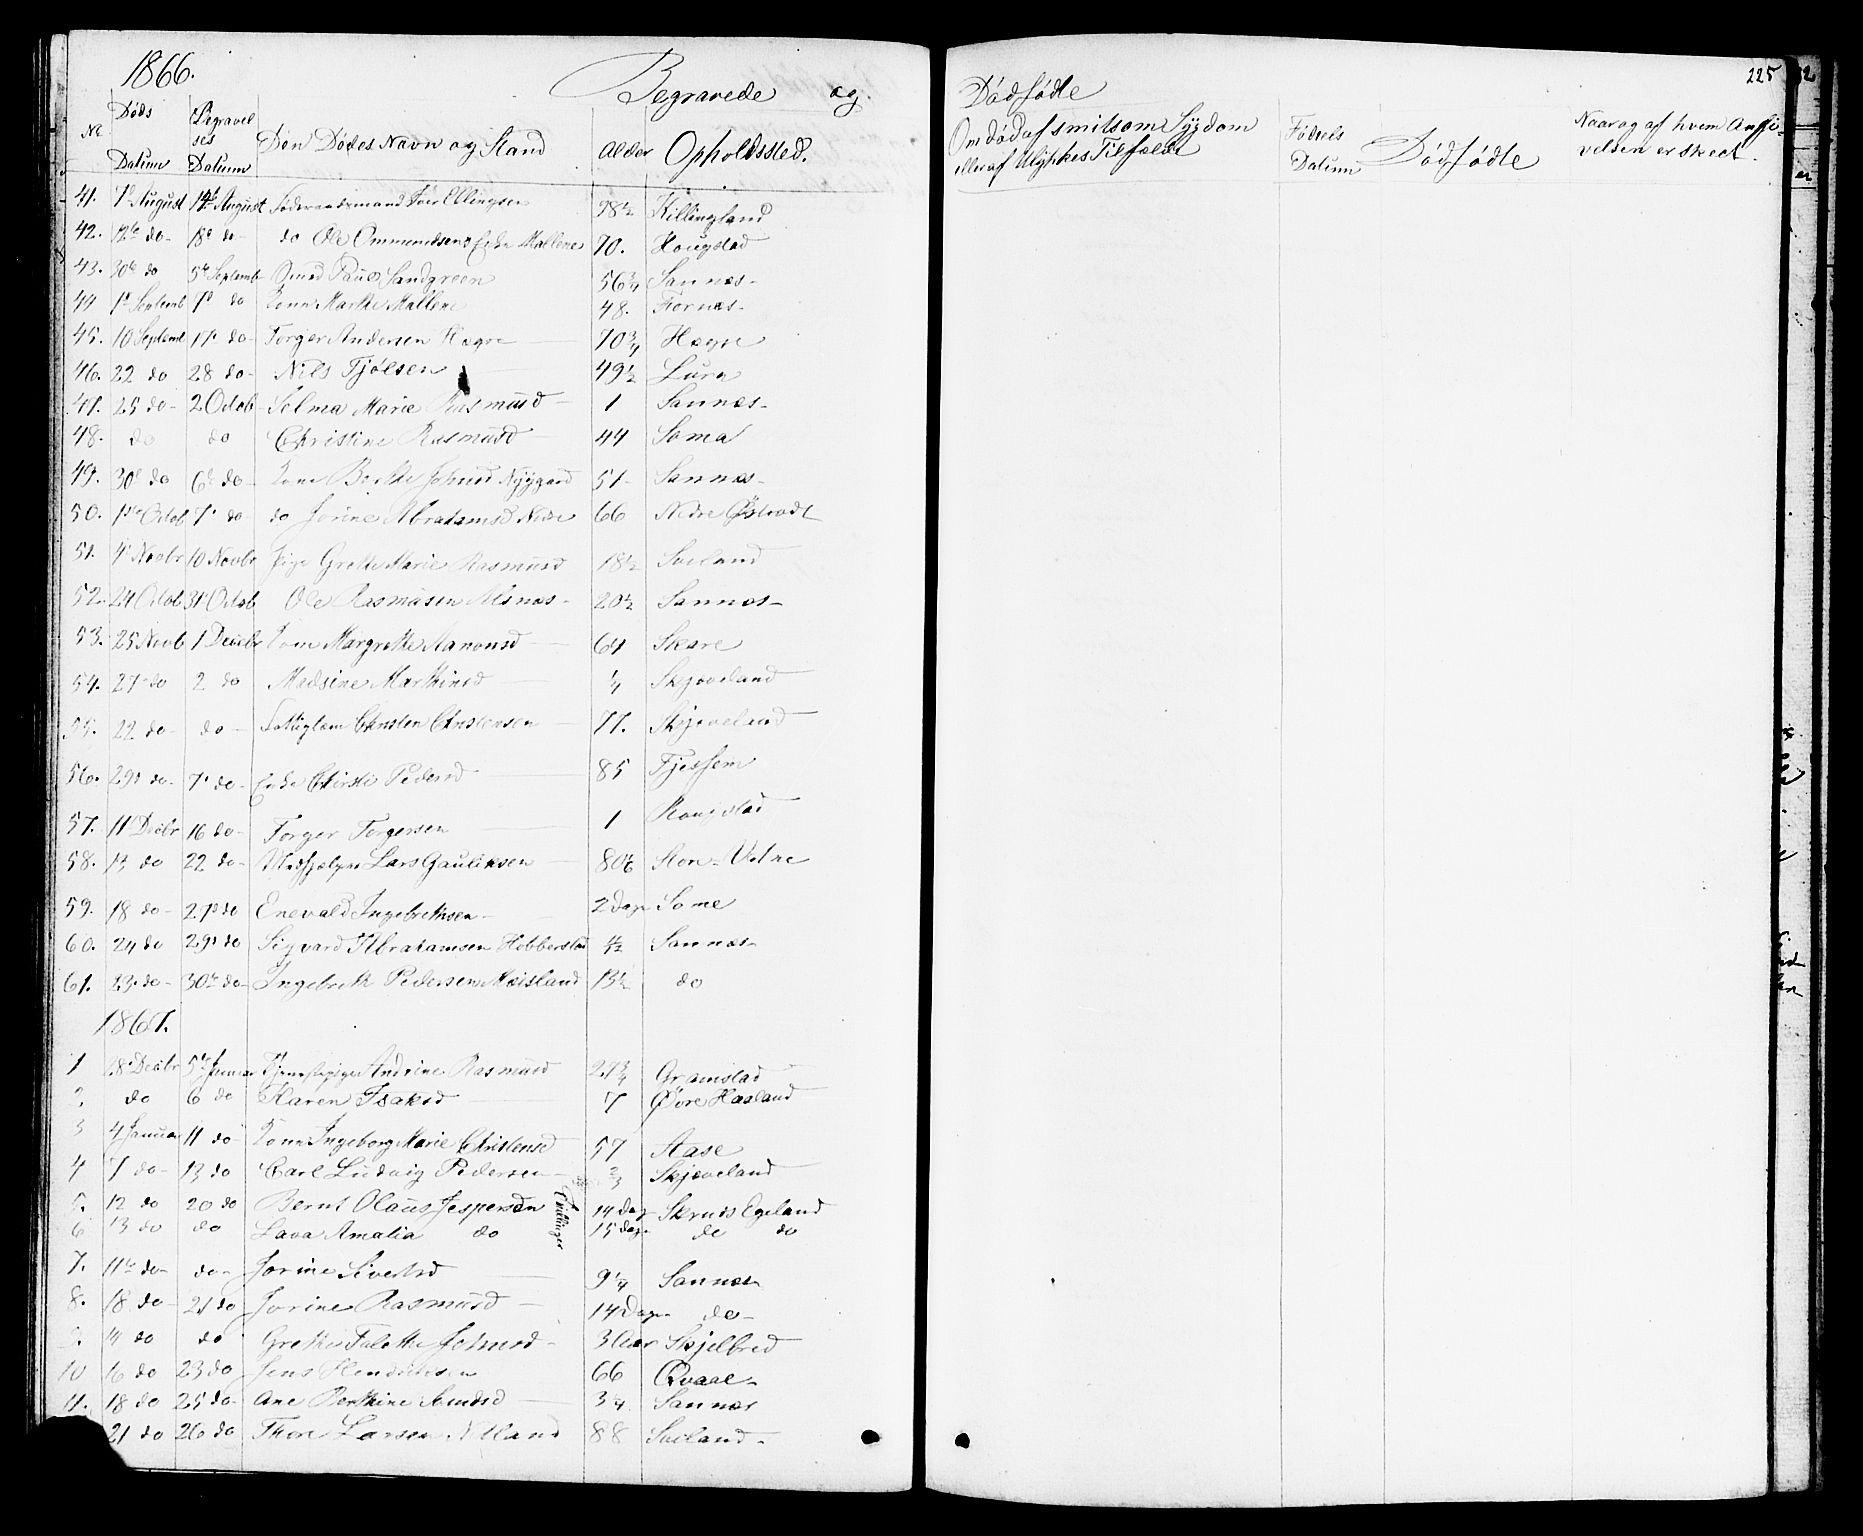 1866.
Begravede og
Nr Døds Datum Begravelses Datum Den Dødes Navn og Stand Alder Opholdssted.
41. 7d August 14d August Føderaadsmand Iver Ellingsen 78½ Killingland
42. 12te do 18d do do Ole Ommundsens Enke Mallene 70. Hougstad
43. 30te do 5te Septemb Paul Sandgreen 56¾ Sannæs
44 1d Septemb 7d do Kone Marthe Mallene 48. Fornæs
45. 10 Septemb 17d do Torger Andersen Hægre 70¾ Hægre
46. 22 do 28 do Nils Tjølsen 49½ Lura
47. 25 do 2 Octob Selma Marie Rasmusd 1 Sannæs
48. do do Christine Rasmusd 44 Soma
49. 30d do 6d do Kone Berthe Johnsd Nygaard 51 Sannæs
50. 1ste Octob 7d do do Jorine Abrahamsd Nedre 66 Nedre Østraadt
51. 4d Novbr 10 Novbr Pige Grethe Marie Rasmusd 18½ Sviland
52. 24 Octob 31d Octob Ole Rasmusen Alsnæs 20½ Sannæs
53. 25 Novb 1 Decbr Kone Margrethe Aanonsd 64 Skare
54. 27 do 2 do Madsine Marthinsd ¼ Skjæveland
55. 22 do do Fattiglem Christen Christensen 77. Skjæveland
56. 29d do 7d do Enke Chirsti Pedersd 85 Tjessem
57. 11d Decbr 16 do Torger Torgersen 1 Hougstad
58. 13 do 22 do Lars Gauteksen 80 Stor-Vatne
59. 18 do 27d do Enevald Ingebrethsen 2 Dage Some
60. 24 do 29d do Sigvard Abrahamsen Hobberstad ½ Sannæs
61. 23 do 30te do Ingebreth Pedersen Mæisland 13½ do
1867.
1 28d Decbr 5te Januar Tjenestepige Andrine Rasmusd 27¾ Gramstad
2. do 6 do Karen Isaksd 7 Øvre Hasland
3 4 Januar 11 do Kone Ingeborg Marie Christensd 57 Aase
4 7 do 13 do Carl Ludvig Pedersen ⅔ Skjæveland
5. 12 do 20 do Bernt Olaus Jespersen Tvillinger 14 Dage Skruds Egeland
6 13 do do Lava Amalia do 15 dage do do
7. 11te do do Jorine Sivertsd 9¼ Sannæs
8. 18 do 21 do Jorine Rasmusd 14 Dage do
9. 14 do do Grethe Talette Johnsd 3 Aar Skjelbred
10 16 do 23 do Jens Hendriksen 66 Qvaal
11. 18 do 25 do Ane Berthine Amdsd ¾ Sannæs
21 do 26 do Thore Larsen Netland 88 Sviland
225
Dødfødte
Om død af smitsom Sygdom eller af Ulykkes Tilfælde Fødsels Datum Dødfødte Naar og af hvem Angivelsen er skeet.